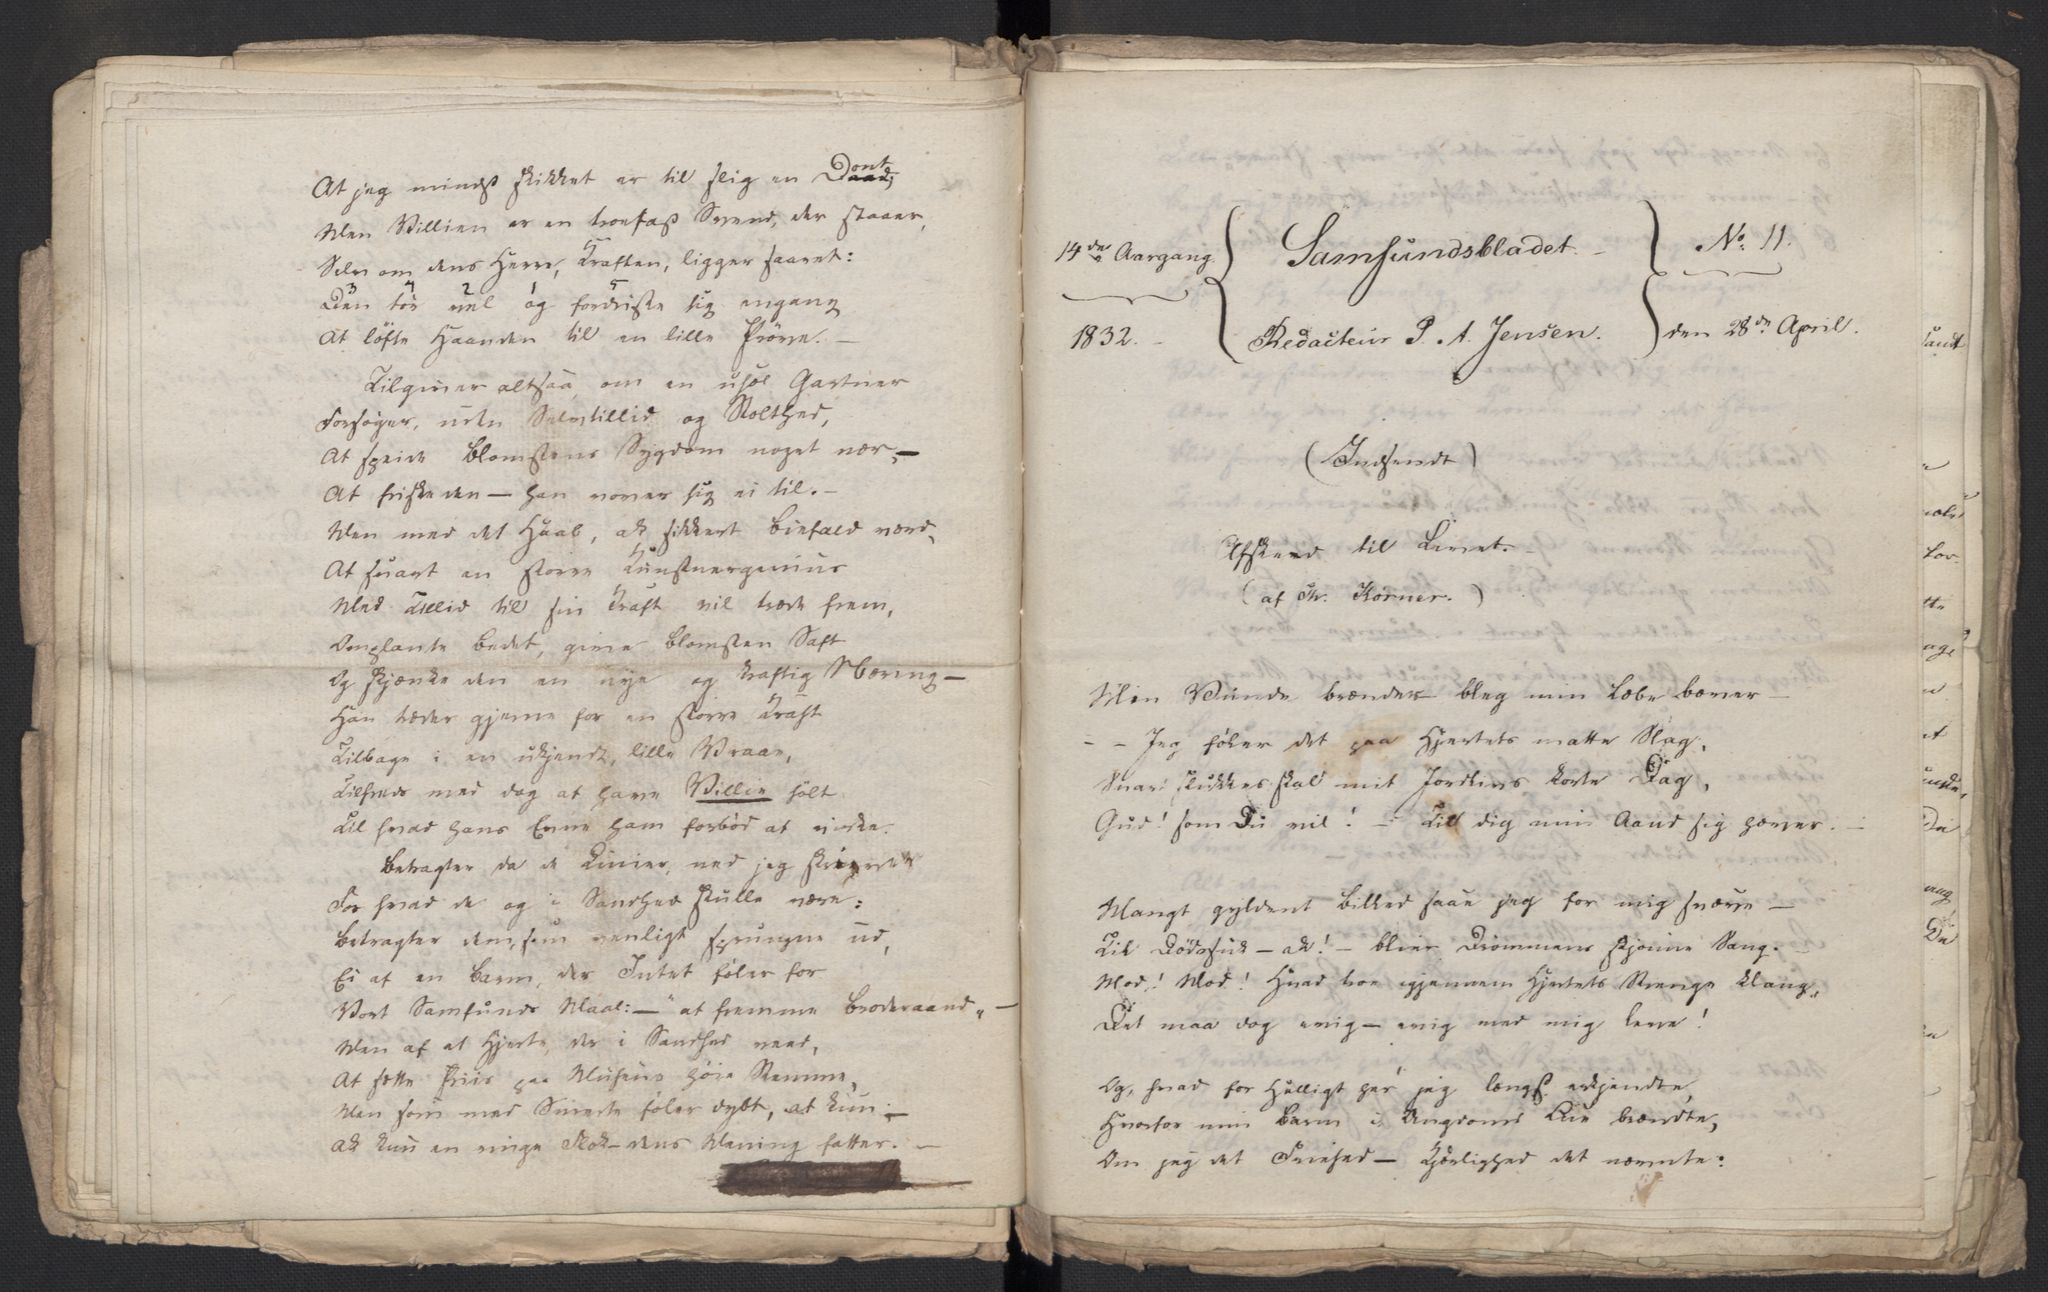 At jeg mindst skikket er til slig en Dont
Men Villien er en trofast Svend, der staaer,
Selv om dens Herre, Kraften, ligger saaret:
Den tør vel og fordriste sig engang
At løfte Haanden til en lille Prøve. —
Tilgiver altsaa, om en usel Gartner
Forsøger, uden Selvtillid og Stolthed,
At speide Blomstens Sygdom noget nær, —
At friske den — han vover sig ei til. —
Men med det Haab, at sikkert Biefald værd,
At snart en større Kunstnergenius
Med Tillid til sin Kraft vil træde frem,
Omplante Bedet, give Blomsten Saft
Og skjænke den en nye og kraftig Næring —
Han træder gjerne for en større Kraft
Tilbage i en ukjendt, lille Vraae,
Tilfreds med dog at have Villie havt
Til hvad hans Evne ham forbød at virke.
Betragter da de Linier, ned jeg skrev
For hvad de og i Sandhed skulle være:
Betragter dem, som venligt sprungne ud,
Ei af en Barm, der Intet føler for
Vort Samfunds Maal: — "at fremme Broderaand" —
Men af et Hjerte, der i Sandhed veed,
At sætte Priis paa Musens høie Stemme,
Men som med Smerte føler dybt, at kun —
Ak kun en ringe Flok — dens Mening fatter. —
14de Aargang. Samfundsbladet. — No. 11.
1832. — Redacteur P. A. Jensen. den 28de April.
(Indsendt)
Afskeed til Livet. —
(af Th. Körner.)
Min Vunde brænder — bleg min Læbe bæver —
— Jeg føler det paa Hjertets matte Slag,
Snart slukkes skal mit Jordlivs korte Dag,
Gud! som Du vil! — Till dig min Aand sig hæver. —
Mangt gyldent Billed saae jeg for mig svæve —
Til Dødssuk — ak! — bliver Drømmens skjønne Sang. —
Mod! Mod! Hvad troe igjennem Hjertets Strenge klang,
Det maa dog evig — evig med mig leve!
Og, hvad for Helligt her jeg længst erkjendte,
Hvorfor min Barm i Ungdoms Lue brændte,
Om jeg det Friehed — Kjærlighed det nævnte: